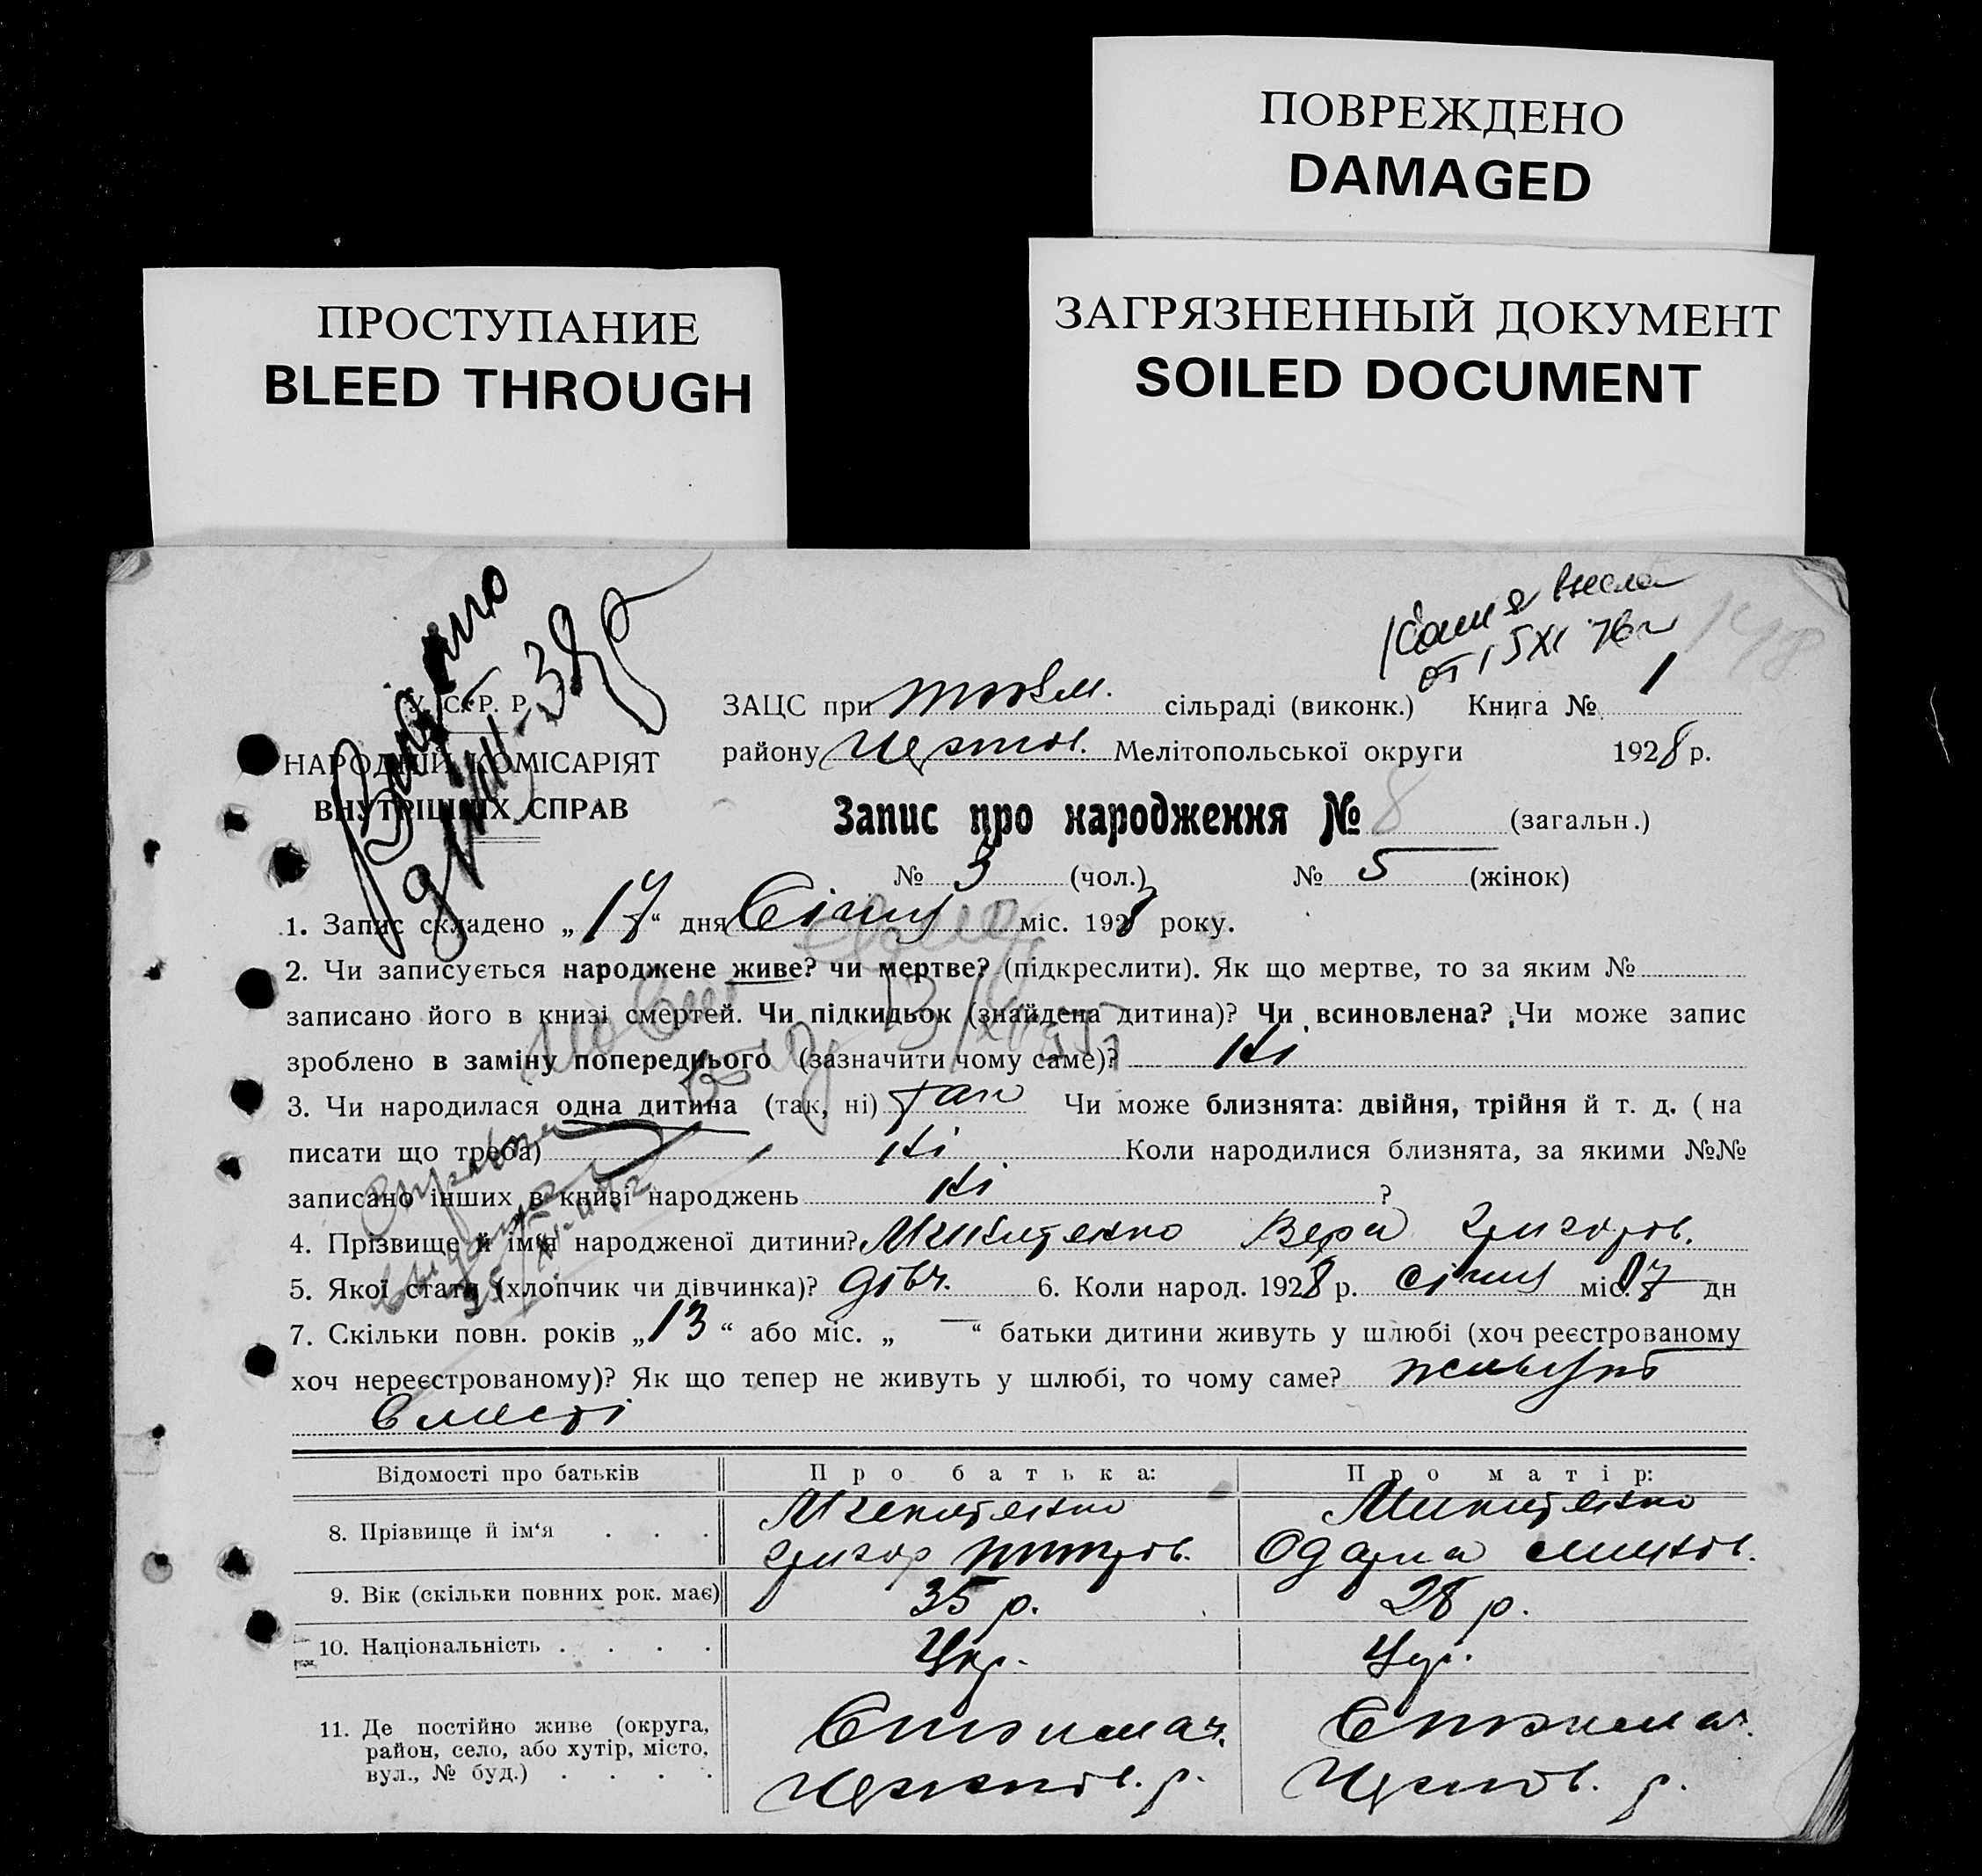 ПОВРЕЖДЕНО
DAMAGED
ПРОСТУПАНИЕ
BLEED THROUGH
ЗАГРЯЗНЕННЫЙ ДОКУМЕНТ
SOILED DOCUMENT
148
У. С. Р. Р.
НАРОДНІЙ КОМІСАРІЯТ
ВНУТРІШНІХ СПРАВ
ЗАЦС при сільраді (виконк.) Книга № 1
району Мелітопольської округи 1928 р.
Запис про народження № 8 (загальн.)
№ 3 (чол.) № 5 (жінок)
1. Запис складено „17“ дня Січня міс. 1928 року.
2. Чи записується народжене живе? чи мертве? (підкреслити). Як що мертве, то за яким №
записано його в книзі смертей. Чи підкидьок (знайдена дитина)? Чи всиновлена? Чи може запис
зроблено в заміну попереднього (зазначити чому саме)? Ні
3. Чи народилася одна дитина (так, ні) так Чи може близнята: двійня, трійня й т. д. (на
писати що треба) Ні Коли народилися близнята, за якими №№
записано інших в книзі народжень Ні ?
4. Прізвище й ім'я народженої дитини? Микитенко Вера Григоров.
5. Якої статі (хлопчик чи дівчинка)? дівч. 6. Коли народ. 1928 р. січня міс. 17 дн
7. Скільки повн. років „13“ або міс. „—“ батьки дитини живуть у шлюбі (хоч реєстрованому
хоч нереєстрованому)? Як що тепер не живуть у шлюбі, то чому саме? живуть
вмісті
Відомості про батьків Про батька: Про матір:
8. Прізвище й ім'я . . . Микитенко Микитенко
Григор Одарка
9. Вік (скільки повних рок. має) 35 р. 28 р.
10. Національність . . . . Укр. Укр.
11. Де постійно живе (округа,
район, село, або хутір, місто,
вул., № буд.) . . . .